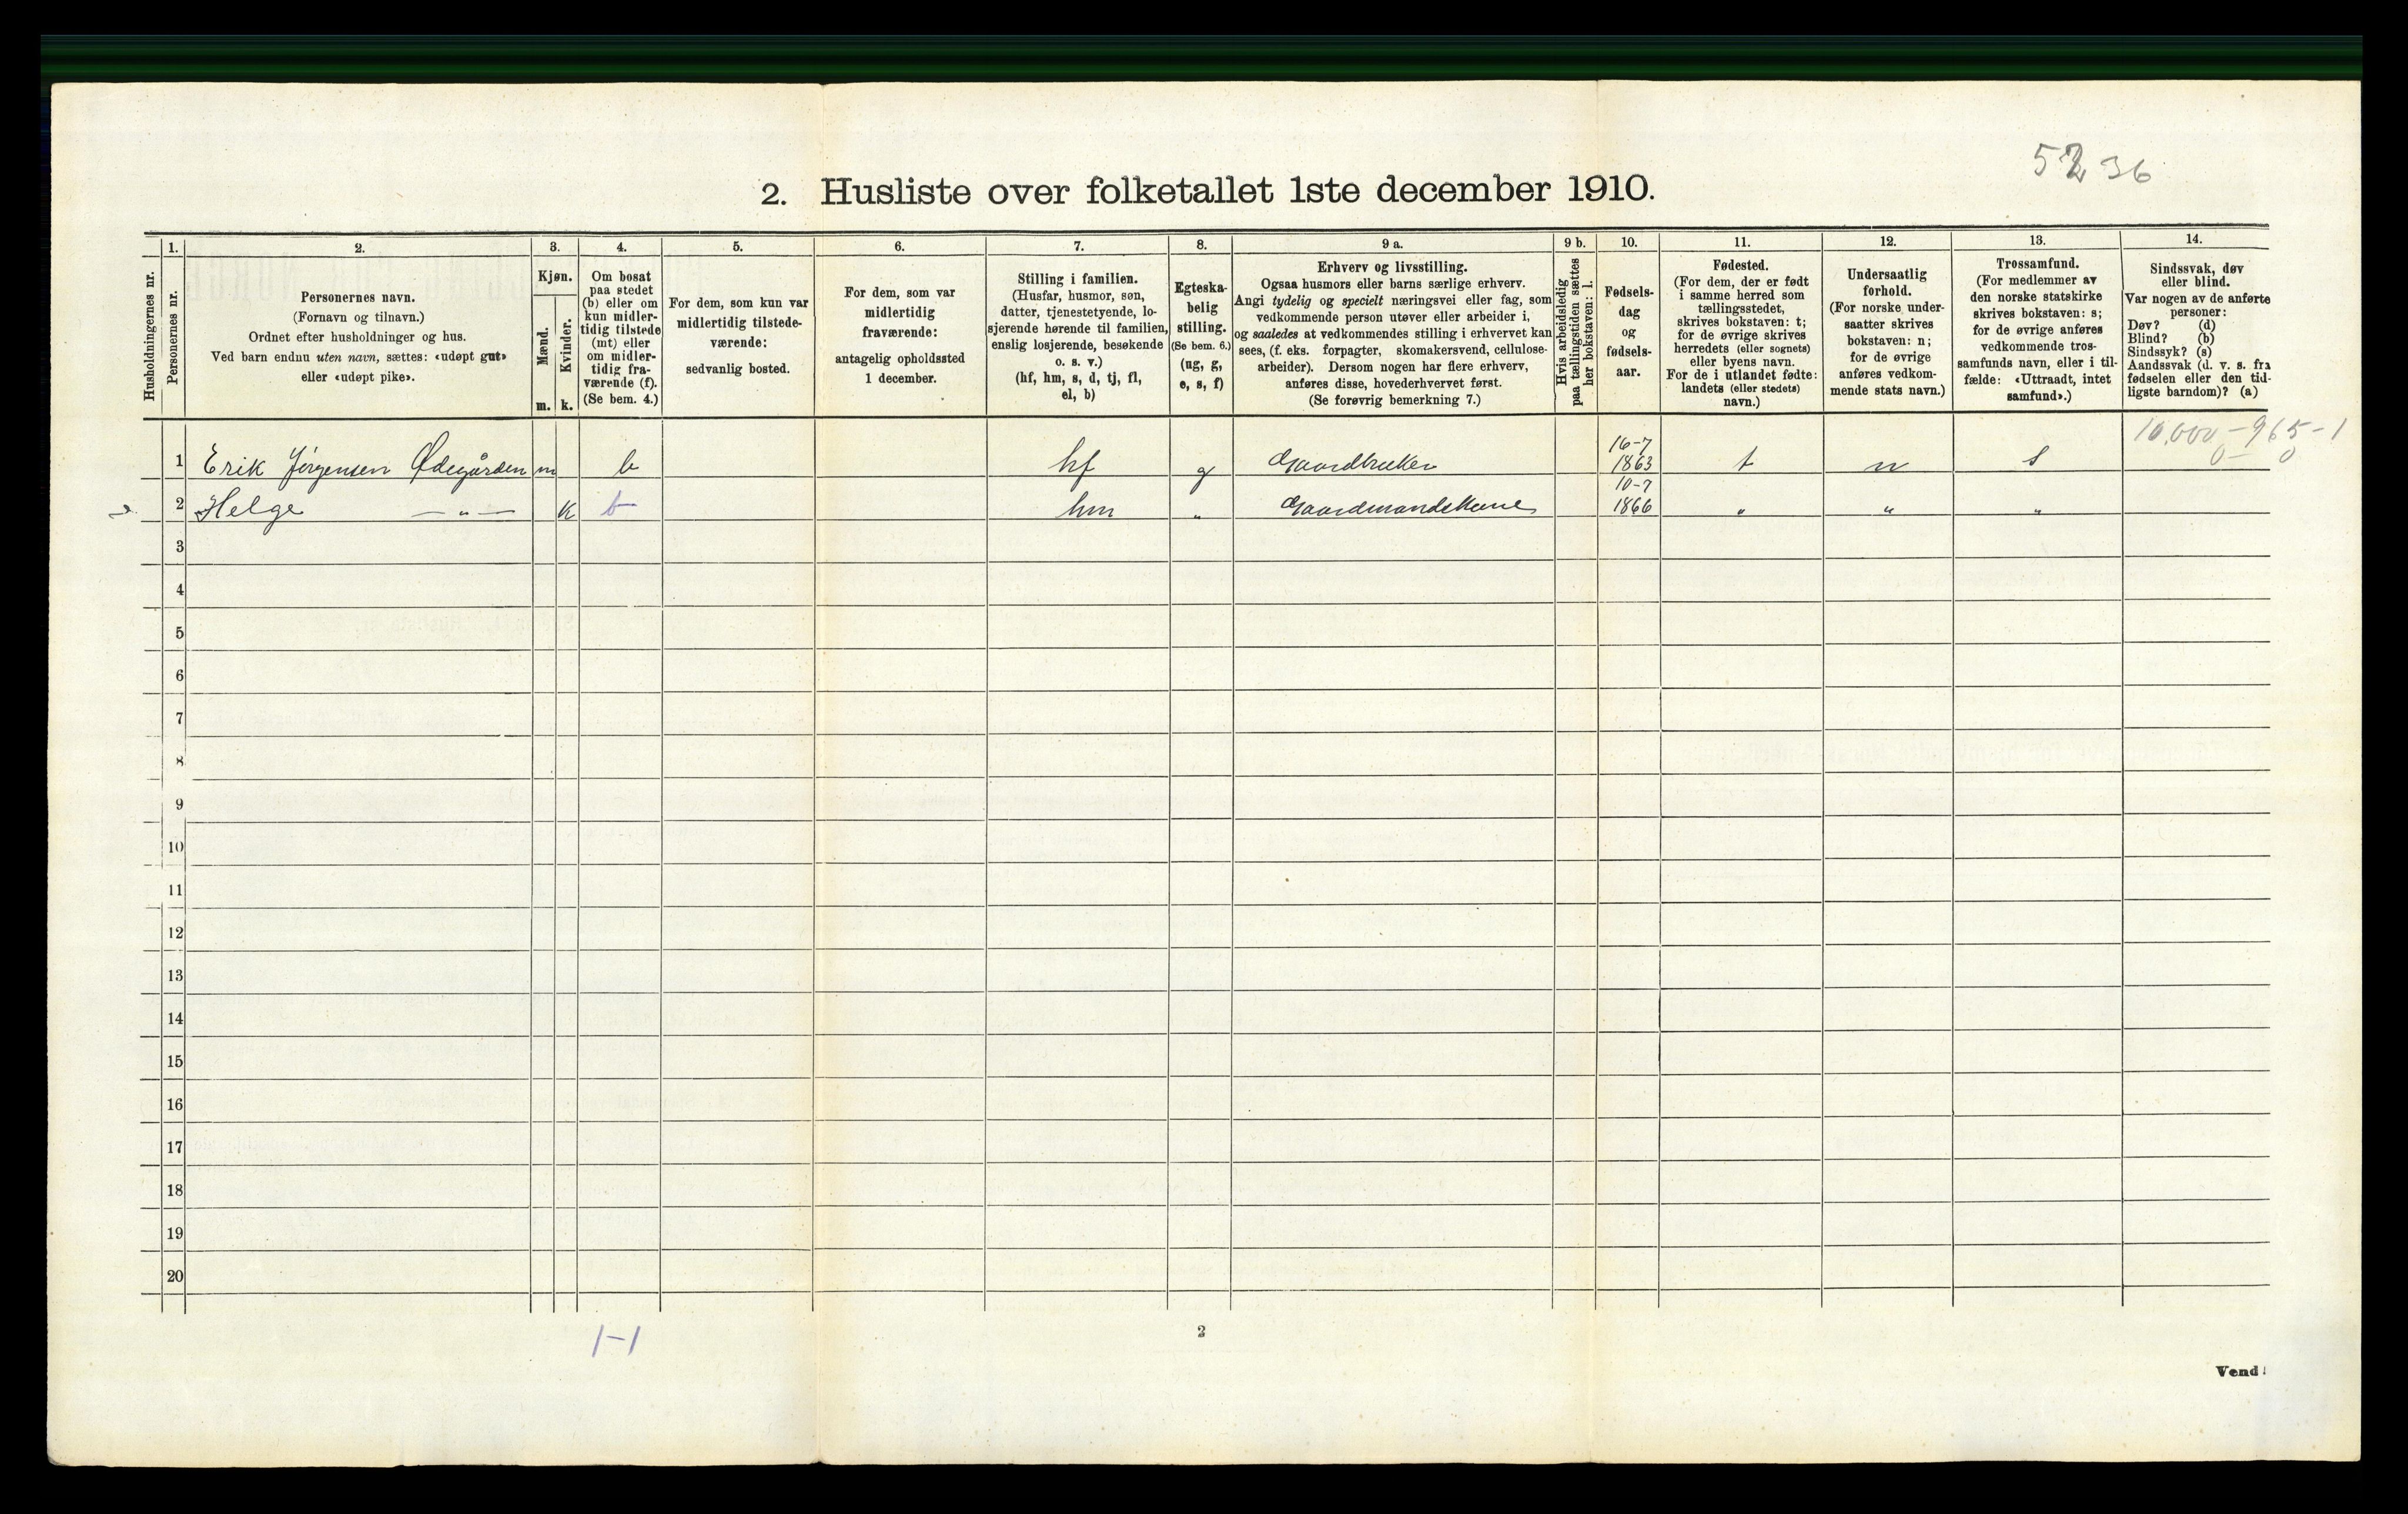 52 36
2. Husliste over folketallet 1ste december 1910.
Husholdningernes nr.
1.
Personernes nr.
2.
Personernes navn.
(Fornavn og tilnavn.)
Ordnet efter husholdninger og hus.
Ved barn endnu uten navn, sættes: «udøpt gut»
eller «udøpt pike».
3.
Kjøn.
Mænd.
m.
Kvinder.
k.
4.
Om bosat
paa stedet
(b) eller om
kun midler-
tidig tilstede
(mt) eller
om midler-
tidig fra-
værende (f).
(Se bem. 4.)
5.
For dem, som kun var
midlertidig tilstede-
værende:
sedvanlig bosted.
6.
For dem, som var
midlertidig
fraværende:
antagelig opholdssted
1 december.
7.
Stilling i familien.
(Husfar, husmor, søn,
datter, tjenestetyende, lo-
sjerende hørende til familien,
enslig losjerende, besøkende
o. s. v.)
(hf, hm, s, d, tj, fl,
el, b)
8.
Egteska-
belig
stilling.
(Se bem. 6.)
(ug, g,
e, s, f)
9 a.
Erhverv og livsstilling.
Ogsaa husmors eller barns særlige erhverv.
Angi tydelig og specielt næringsvei eller fag, som
vedkommende person utøver eller arbeider i,
og saaledes at vedkommendes stilling i erhvervet kan
sees, (f. eks. forpagter, skomakersvend, cellulose-
arbeider). Dersom nogen har flere erhverv,
anføres disse, hovederhvervet først.
(Se forøvrig bemerkning 7.)
9 b.
Hvis arbeidsledig
paa tællingstiden sættes
her bokstaven: l.
10.
Fødsels-
dag
og
fødsels-
aar.
11.
Fødested.
(For dem, der er født
i samme herred som
tællingsstedet,
skrives bokstaven: t;
for de øvrige skrives
herredets (eller sognets)
eller byens navn.
For de i utlandet fødte:
landets (eller stedets)
navn.)
12.
Undersaatlig
forhold.
(For norske under-
saatter skrives
bokstaven: n;
for de øvrige
anføres vedkom-
mende stats navn.)
13.
Trossamfund.
(For medlemmer av
den norske statskirke
skrives bokstaven: s;
for de øvrige anføres
vedkommende tros-
samfunds navn, eller i til-
fælde: «Uttraadt, intet
samfund».)
14.
Sindssvak, døv
eller blind.
Var nogen av de anførte
personer:
Døv? (d)
Blind? (b)
Sindssyk? (s)
Aandssvak (d. v. s. fra
fødselen eller den tid-
ligste barndom)? (a)
10,000 - 965 - 1
0 - 0
1 Erik Jörgensen Ødegården m b hf g Gaardbruker 16-7 1863 t n s
2 Helge — " — k b hm " Gaardmandskone 10-7 1866 " " "
3
4
5
6
7
8
9
10
11
12
13
14
15
16
17
18
19
20
1-1
2
Vend!